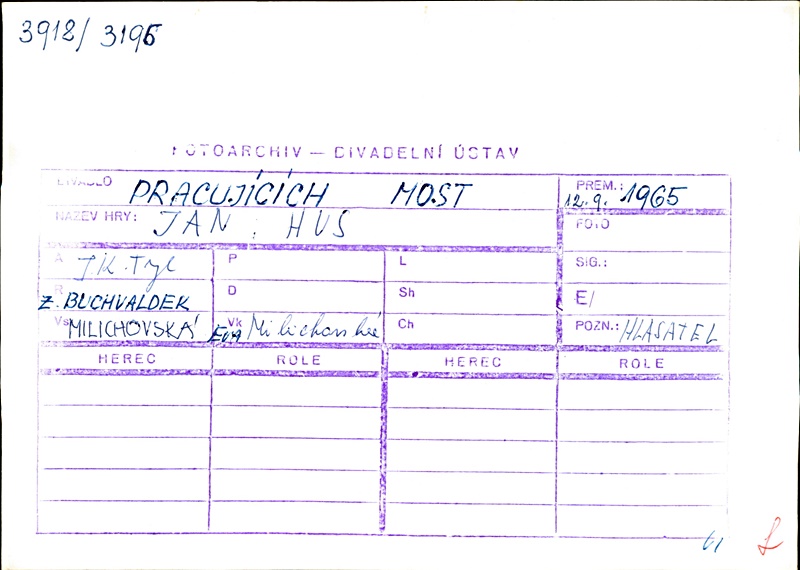 3912/ 3195
FOTOARCHIV — DIVADELNÍ ÚSTAV
DIVADLO PRACUJÍCÍCH MOST PREM.: 12.9. 1965
NÁZEV HRY: JAN HUS FOTO
A J.K. Tyl P L SIG.:
R Z. BUCHVALDEK D Sh E/
Vs MILICHOVSKÁ Vk EVA Milichovská Ch POZN.: HLASATEL
HEREC ROLE HEREC ROLE